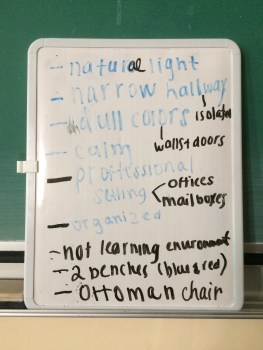 - natural light
- narrow hallway
isolated
- dull colors
walls + doors
- calm
- proffessional
setting
offices
mailboxes
- organized
- not learning environment
- 2 benches (blue & red)
- OTTOMAN chair